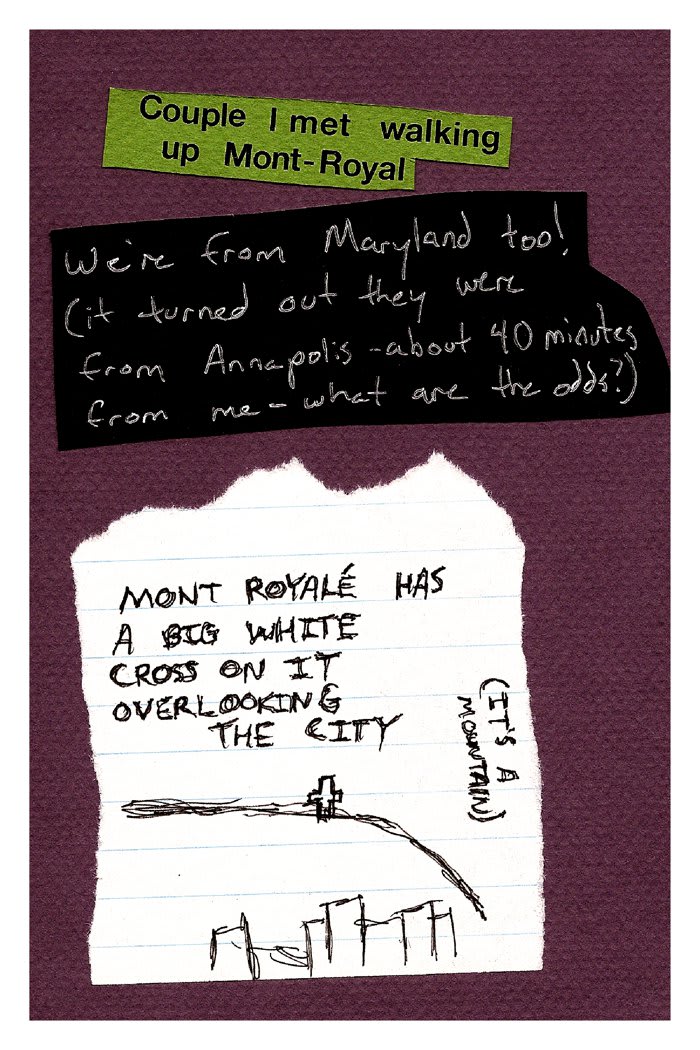 Couple I met walking
up Mont-Royal
We're from Maryland too!
(it turned out they were
from Annapolis - about 40 minutes
from me - what are the odds?)
MONT ROYALÉ HAS
A BIG WHITE
CROSS ON IT
OVERLOOKING
THE CITY
(IT'S A
MOUNTAIN)